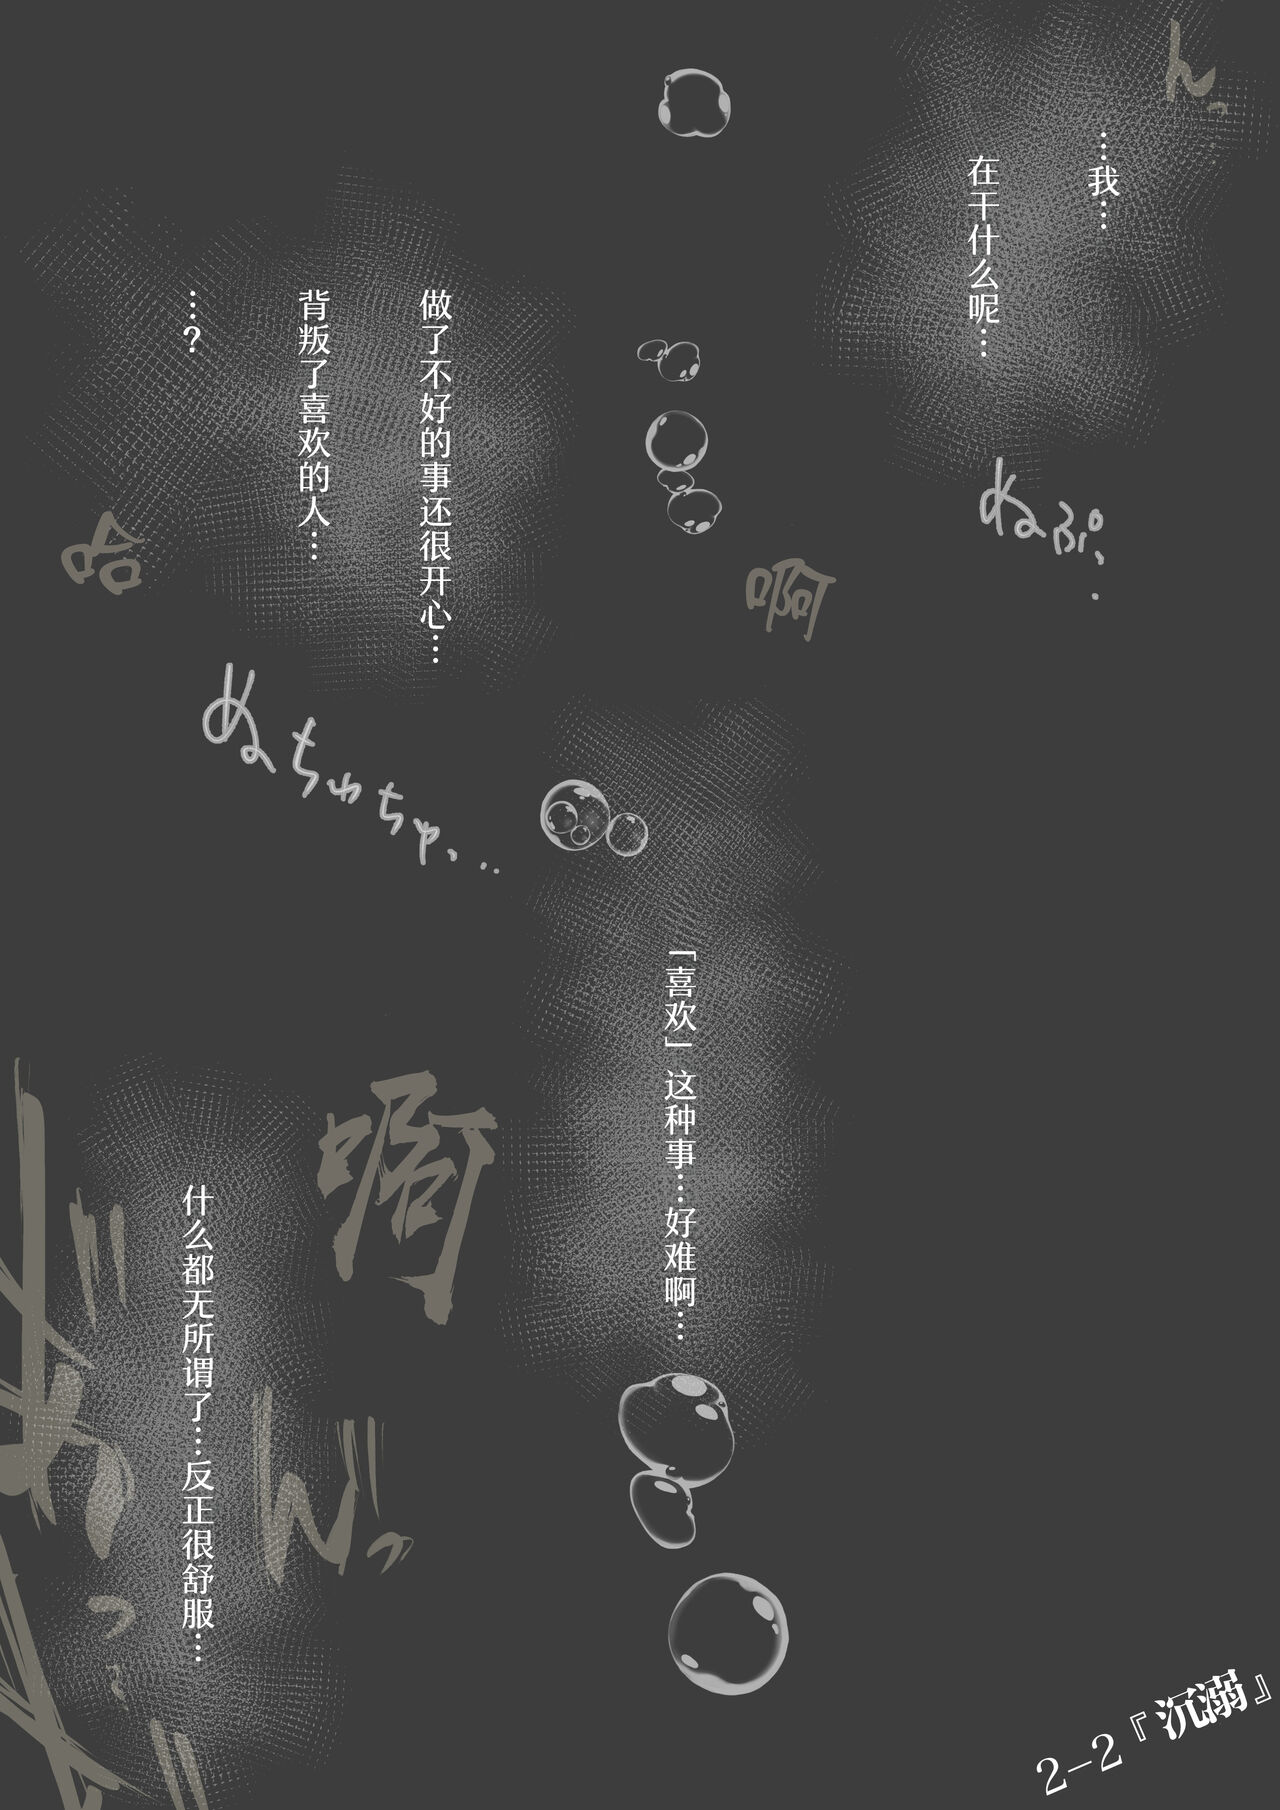 ん。
…我…
在干什么呢…
ぬぷ、
做了不好的事还很开心…
背叛了喜欢的人…
…?
哈
啊
ぬちゅちゅ、
「喜欢」这种事…好难啊…
啊
什么都无所谓了…反正很舒服…
2-2『沉溺』